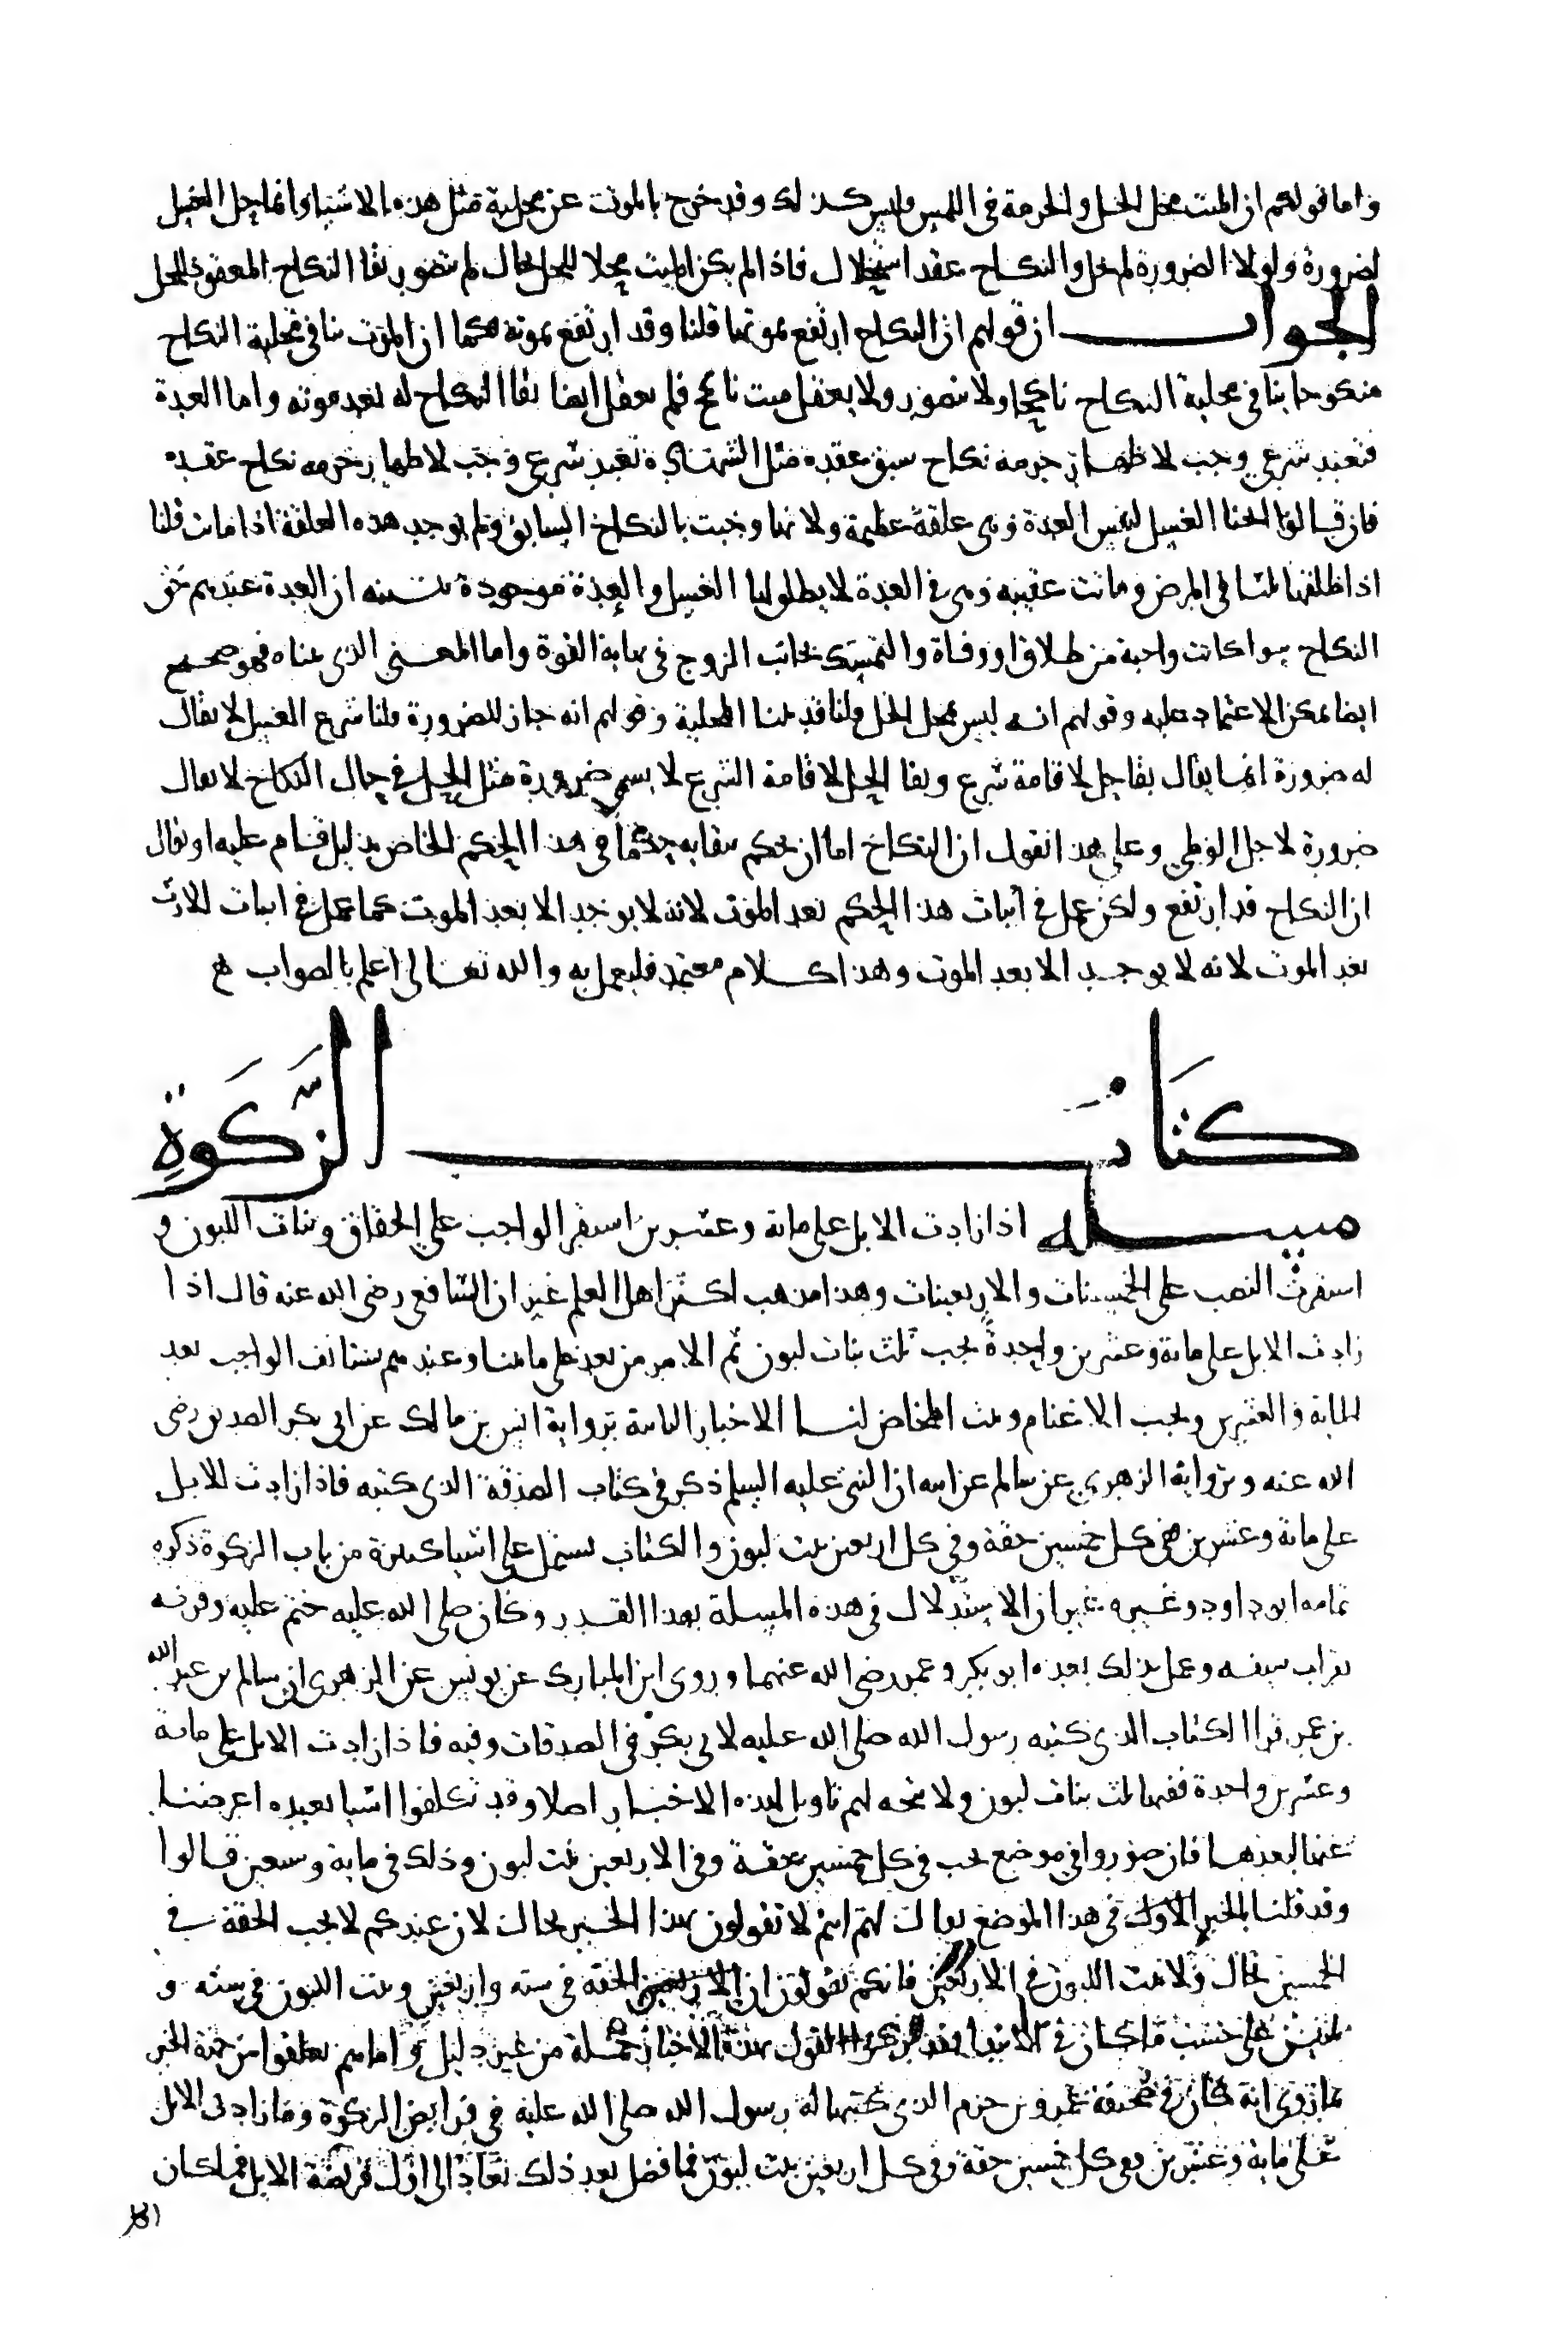 واما قولهم ان الميت محل الحل والحرمة في اللمس وليس كذلك وقد خرج بالموت عن محلية مثل هذه الاشيا وانما حل الغسل
لضرورة ولولا الضرورة لم يحل والنكاح عقد استحلال فاذا لم يكن الميت محلا للحل بحال لم يتصور بقا النكاح المعقود للحل
الجواب ان قولهم ان النكاح ارتفع بموتها قلنا وقد ارتفع بموته كما ان الموت ينافي محلية النكاح
منكوحا ينافي محلية النكاح ناكحا ولا يتصور ولا يعقل ميت ناكح فلم يعقل ايضا بقا النكاح له بعد موته واما العدة
فتعبد شرعي وجب لاظهار حرمة نكاح سبق عقده تعبد شرعي وجب لاظهار حرمة نكاح عقده
فان قالوا الحنا الغسل لنفس العدة وهي علقة عظيمة ولانها وجبت بالنكاح السابق ولم يوجد هذه العلقة اذا ماتت قلنا
اذا طلقها ثلثا في المرض ومات عقيبه وهي في العدة لا يطلق لها الغسل والعدة موجودة ان العدة عندهم حق
النكاح سوا كانت واجبة من طلاق او وفاة والتمسك بجانب الزوج في نهاية القوة واما المعنى الذي قلناه فهو صحيح
ايضا يمكن الاعتماد عليه وقولهم انه ليس بمحل الحل قلنا قد بينا المحلية وقولهم انه جاز للضرورة قلنا شرع الغسل لا يقال
له ضرورة انما يقال بقا حل لاقامة شرع وبقا الحل لاقامة الشرع لا يسمى ضرورة مثل الحل في حال النكاح لا يقال
ضرورة لاجل الوطي وعلى هذا نقول ان النكاح اما ان يحكم ببقايه حكما في هذا الحكم الخاص بدليل قام عليه او يقال
ان النكاح قد ارتفع ولكن عمل في اثبات هذا الحكم بعد الموت لانه لا يوجد الا بعد الموت كما عمل في اثبات الارث
بعد الموت لانه لا يوجد الا بعد الموت وهذا كلام معتمد فليعمل به والله تعالى اعلم بالصواب
كتاب الزكوة
مسلة اذا زادت الابل على ماية وعشرين استقر الواجب على الحقاق وبنات اللبون و
استقرت النصب على الخمسينات والاربعينات وهذا مذهب اكثر اهل العلم غير ان الشافعي رضي الله عنه قال اذا
زادت الابل على ماية وعشرين واحدة يجب ثلث بنات لبون ثم الامر من بعد على ما بينا وعندهم يستانف الواجب بعد
الماية والعشرين ويجب الاغنام وبنت المخاض لنا الاخبار الثابتة برواية انس بن مالك عن ابي بكر الصديق رضي
الله عنه وبرواية الزهري عن سالم عن ابيه ان النبي عليه السلم ذكر في كتاب الصدقة الذي كتبه فاذا زادت الابل
على ماية وعشرين ففي كل خمسين حقة وفي كل اربعين بنت لبون والكتاب يشتمل على اشيا كثيرة من باب الزكوة ذكره
بتمامه ابو داود وغيره غير ان الاستدلال في هذه المسلة بهذا القدر وكان صلى الله عليه ختم عليه وقرنه
بقراب سيفه وعمل بذلك بعده ابو بكر وعمر رضي الله عنهما وروى ابن المبارك عن يونس عن الزهري ان سالم بن عبد الله
بن عمر قرا الكتاب الذي كتبه رسول الله صلى الله عليه لابي بكر في الصدقات وفيه فاذا زادت الابل على ماية
وعشرين واحدة ففيها ثلث بنات لبون ولا يتجه لهم تاويل لهذه الاخبار اصلا وقد تكلفوا اشيا بعيده اعرضنا
عنها لبعدها فان صوروا في موضع يجب في كل خمسين حقة وفي الاربعين بنت لبون وذلك في ماية وتسعين قالوا
وقد قلنا بالخبر الاول في هذا الموضع يقال لهم انتم لا تقولون بهذا الخبر بحال لان عندكم لا يجب الحقة في
الخمسين بحال ولا بنت اللبون في الاربعين فانكم تقولون ان الحقة في ستة واربعين وبنت اللبون في ستة و
ثلثين على حسب ما كان في الابتدا فقد تركوا القول بهذه الاخبار جملة من غير دليل واما هم تعلقوا من جهة الخبر
بما روى انه كان في صحيفة عمرو بن حزم الذي كتبها له رسول الله صلى الله عليه في فرايض الزكوة وما زاد من الابل
على ماية وعشرين ففي كل خمسين حقة وفي كل اربعين بنت لبون فما فضل بعد ذلك تعاد الى اول فريضة الابل فما كان